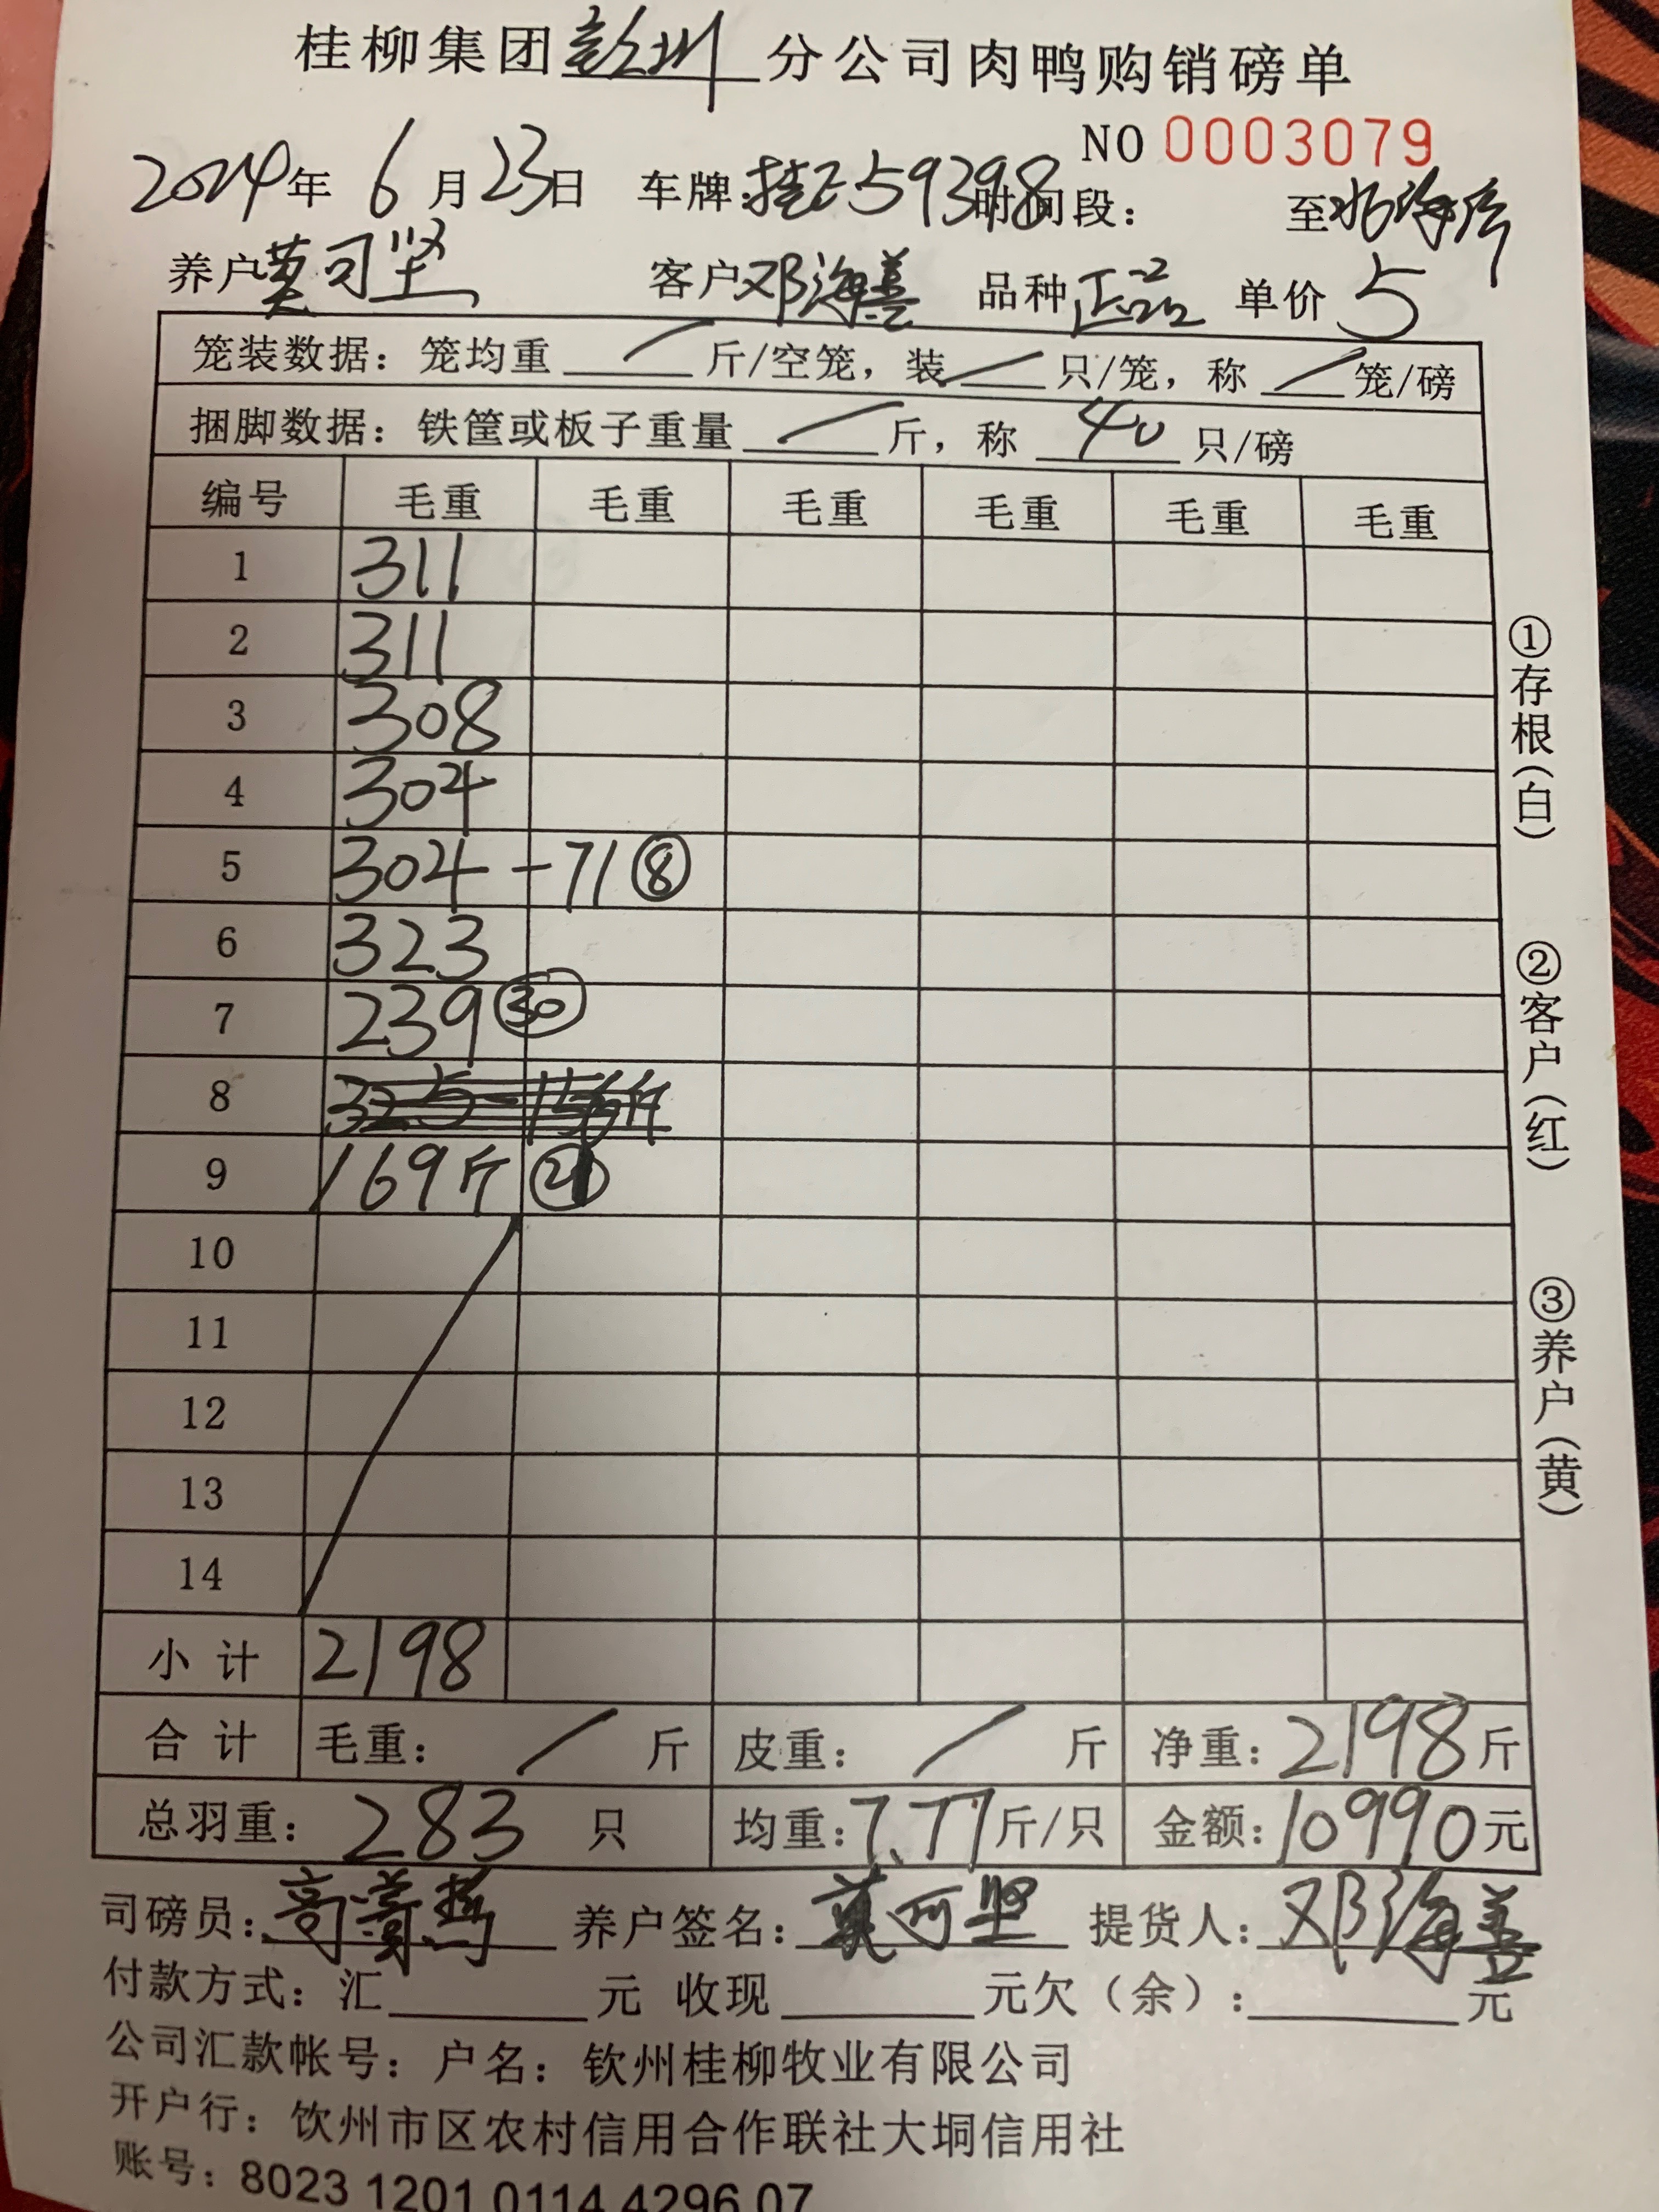 桂柳集团 分公司肉鸭购销磅单
NO 0003079
2024年 6月23日 车牌:桂E59398 时间段: 至
养户莫可坚 客户邓海善 品种正品 单价 5
笼装数据: 笼均重 / 斤/空笼, 装 / 只/笼, 称 / 笼/磅
捆脚数据: 铁筐或板子重量 / 斤, 称 40 只/磅
编号 毛重 毛重 毛重 毛重 毛重 毛重
1 311
2 311
3 308
4 304
5 304 -71 ⑧
6 323
7 239 ㉚
8
9 169斤 ㉑
10
11
12
13
14
小计 2198
合计 毛重: / 斤 皮重: / 斤 净重: 2198斤
总羽重: 283 只 均重: 7.77斤/只 金额: 10990元
司磅员: 养户签名: 莫可坚 提货人: 邓海善
付款方式: 汇 元 收现 元欠(余): 元
公司汇款帐号: 户名: 钦州桂柳牧业有限公司
开户行: 钦州市区农村信用合作联社大垌信用社
账号: 8023 1201 0114 4296 07
①存根(白)
②客户(红)
③养户(黄)